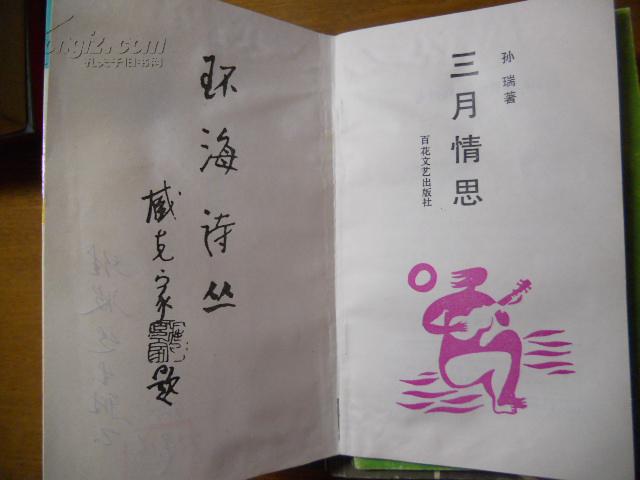 kongfz.com
孔夫子旧书网
环海诗丛
臧克家
题
孙瑞著
三月情思
百花文艺出版社